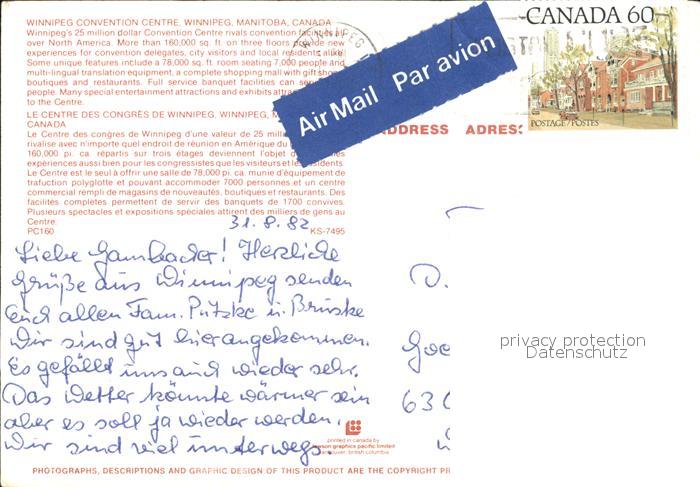 WINNIPEG CONVENTION CENTRE, WINNIPEG, MANITOBA, CANADA
Winnipeg's 25 million dollar Convention Centre rivals convention facilities
over North America. More than 160,000 sq. ft. on three floors provide new
experiences for convention delegates, city visitors and local residents alike.
Some unique features include a 78,000 sq. ft. room seating 7,000 people and
multi-lingual translation equipment, a complete shopping mall with gift shops,
boutiques and restaurants. Full service banquet facilities can serve
people. Many special entertainment attractions and exhibits attra
to the Centre.
LE CENTRE DES CONGRÈS DE WINNIPEG, WINNIPEG, M
CANADA
Le Centre des congres de Winnipeg d'une valeur de 25 mill
rivalise avec n'importe quel endroit de réunion en Amérique du
160,000 pi. ca. répartis sur trois étages deviennent l'objet d
expériences aussi bien pour les congressistes que les visiteurs et les résidents.
Le Centre est le seul à offrir une salle de 78,000 pi. ca. munie d'équipement de
traduction polyglotte et pouvant accommoder 7000 personnes et un centre
commercial rempli de magasins de nouveautés, boutiques et restaurants. Des
facilités complètes permettent de servir des banquets de 1700 convives.
Plusieurs spectacles et expositions spéciales attirent des milliers de gens au
Centre.
PC160 KS-7495
Air Mail Par avion
CANADA 60
POSTAGE/POSTES
ADDRESS ADRES
31.8.82
Liebe Gambacher! Herzliche
Grüße aus Winnipeg senden
Euch allen Fam. Putzke u. Brünske
Wir sind gut hier angekommen.
Es gefällt uns auch wieder sehr.
Das Wetter könnte wärmer sein
aber es soll ja wieder werden.
Wir sind viel unterwegs.
D.
Goe
630
W
privacy protection
Datenschutz
printed in canada by
lawson graphics pacific limited
vancouver, british columbia
PHOTOGRAPHS, DESCRIPTIONS AND GRAPHIC DESIGN OF THIS PRODUCT ARE THE COPYRIGHT PR